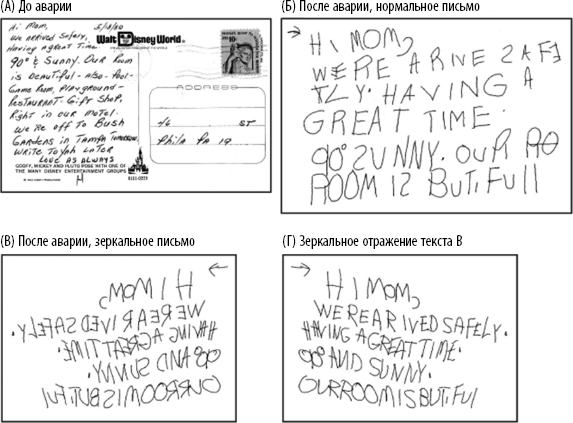 (А) До аварии
Hi Mom,
We arrived Safely,
Having a great Time
90° & Sunny. Our Room
is Beautiful - Also - Pool -
Game Room, Playground -
Restaurant - Gift Shop,
Right in our Motel.
We're off To Bush
Gardens in Tampa Tomorrow.
Write To yah Later
Love as always
GOOFY, MICKEY AND PLUTO POSE WITH ONE OF
THE MANY DISNEY ENTERTAINMENT GROUPS
Walt Disney World.
ADDRESS
ST
Phila Pa 19
(Б) После аварии, нормальное письмо
HI MOM,
WERE ARIVE 2AFE
TLY. HAVING A
GREAT TIME.
90° 2UNNY. OUR RO
ROOM I2 BUTIFUll
(В) После аварии, зеркальное письмо
HI MOM,
WE REARIVED SAFELY.
HAVING A GREAT TIME.
90° AND SUNNY.
OURROOMISBUTIFUl
(Г) Зеркальное отражение текста В
HI MOM,
WE REARIVED SAFELY.
HAVING A GREAT TIME.
90° AND SUNNY.
OURROOMISBUTIFUl